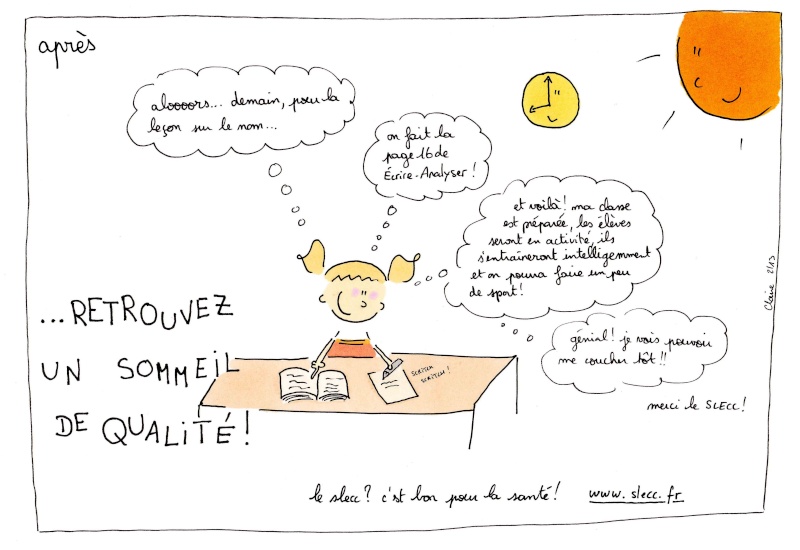 après
aloooors... demain, pour la
leçon sur le nom...
on fait la
page 16 de
Écrire-Analyser !
et voilà ! ma classe
est préparée, les élèves
seront en activité, ils
s'entraîneront intelligemment
et on pourra faire un peu
de sport !
génial ! je vais pouvoir
me coucher tôt !!
merci le SLECC !
...RETROUVEZ
UN SOMMEIL
DE QUALITÉ !
SCRITCH
SCRITCH !
Claire 2/13
le slecc ? c'est bon pour la santé ! www.slecc.fr